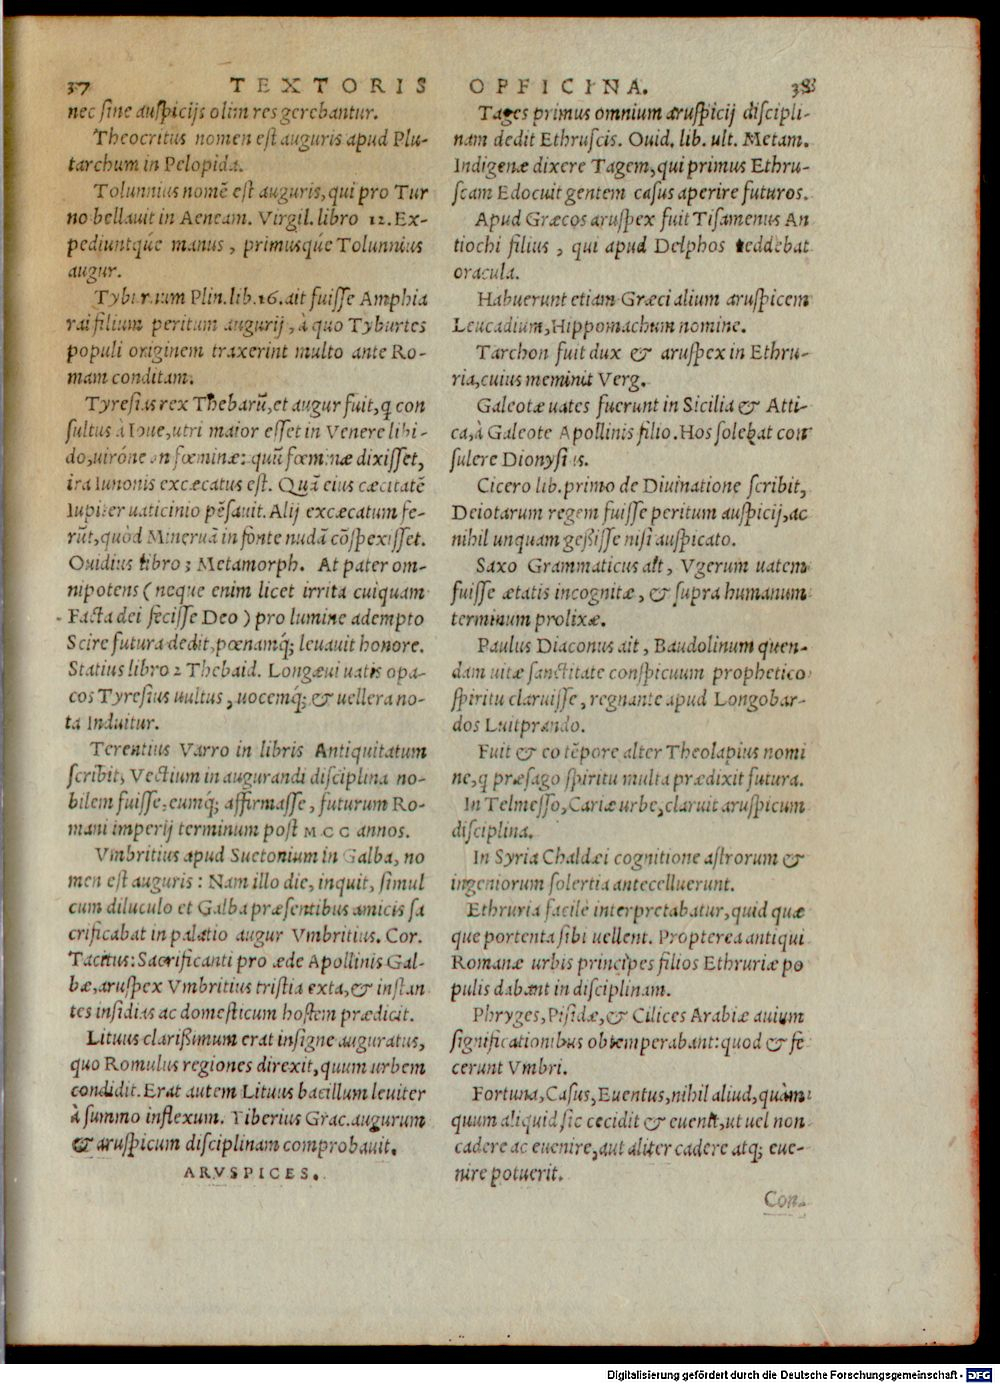 37 TEXTORIS
nec sine auspicijs olim res gerebantur.
Theocritus nomen est auguris apud Plu-
tarchum in Pelopida.
Tolunnius nomē est auguris, qui pro Tur
no bellauit in Aeneam. Virgil. libro 12. Ex-
pediuntq́ue manus, primusq́ue Tolunnius
augur.
Tyburnum Plin. lib. 16. ait fuisse Amphia
rai filium peritum augurij, à quo Tyburtes
populi originem traxerint multo ante Ro-
mam conditam.
Tyresias rex Thebarū, et augur fuit, q con
sultus à Ioue, utri maior esset in Venere libi-
do, uiróne an fœminæ: quū fœminæ dixisset,
ira Iunonis excæcatus est. Quā eius cæcitatē
Iupiter uaticinio pēsauit. Alij excæcatum fe-
rūt, quòd Mineruā in fonte nudā cōspexisset.
Ouidius libro 3 Metamorph. At pater om-
nipotens (neque enim licet irrita cuiquam
Facta dei fecisse Deo) pro lumine adempto
Scire futura dedit, pœnamq́; leuauit honore.
Statius libro 2 Thebaid. Longæui uatis opa-
cos Tyresius uultus, uocemq́; & uellera no-
ta Induitur.
Terentius Varro in libris Antiquitatum
scribit, Vectium in augurandi disciplina no-
bilem fuisse, eumq́; affirmasse, futurum Ro-
mani imperij terminum post MCC annos.
Vmbritius apud Suetonium in Galba, no
men est auguris: Nam illo die, inquit, simul
cum diluculo et Galba præsentibus amicis sa
crificabat in palatio augur Vmbritius. Cor.
Tacitus: Sacrificanti pro æde Apollinis Gal-
bæ, aruspex Vmbritius tristia exta, & instan
tes insidias ac domesticum hostem prædicit.
Lituus clarißimum erat insigne auguratus,
quo Romulus regiones direxit, quum urbem
condidit. Erat autem Lituus bacillum leuiter
à summo inflexum. Tiberius Grac. augurum
& aruspicum disciplinam comprobauit.
ARVSPICES.
OFFICINA. 38
Tages primus omnium aruspicij discipli-
nam dedit Ethruscis. Ouid. lib. ult. Metam.
Indigenæ dixere Tagem, qui primus Ethru-
scam Edocuit gentem casus aperire futuros.
Apud Græcos aruspex fuit Tisamenus An
tiochi filius, qui apud Delphos reddebat
oracula.
Habuerunt etiam Græci alium aruspicem
Leucadium, Hippomachum nomine.
Tarchon fuit dux & aruspex in Ethru-
ria, cuius meminit Verg.
Galeotæ uates fuerunt in Sicilia & Atti-
ca, à Galeote Apollinis filio. Hos solebat con
sulere Dionysius.
Cicero lib. primo de Diuinatione scribit,
Deiotarum regem fuisse peritum auspicij, ac
nihil unquam geßisse nisi auspicato.
Saxo Grammaticus ait, Vgerum uatem
fuisse ætatis incognitæ, & supra humanum
terminum prolixæ.
Paulus Diaconus ait, Baudolinum quen-
dam uitæ sanctitate conspicuum prophetico
spiritu claruisse, regnante apud Longobar-
dos Luitprando.
Fuit & eo tēpore alter Theolapius nomi
ne, q præsago spiritu multa prædixit futura.
In Telmesso, Cariæ urbe, claruit aruspicum
disciplina.
In Syria Chaldæi cognitione astrorum &
ingeniorum solertia antecelluerunt.
Ethruria facilè interpretabatur, quid quæ
que portenta sibi uellent. Propterea antiqui
Romanæ urbis principes filios Ethruriæ po
pulis dabant in disciplinam.
Phryges, Pisidæ, & Cilices Arabiæ auium
significationibus obtemperabant: quod & fe
cerunt Vmbri.
Fortuna, Casus, Euentus, nihil aliud, quàm
quum aliquid sic cecidit & euenit, ut uel non
cadere ac euenire, aut aliter cadere atq; eue-
nire potuerit.
Con-
Digitalisierung gefördert durch die Deutsche Forschungsgemeinschaft - DFG